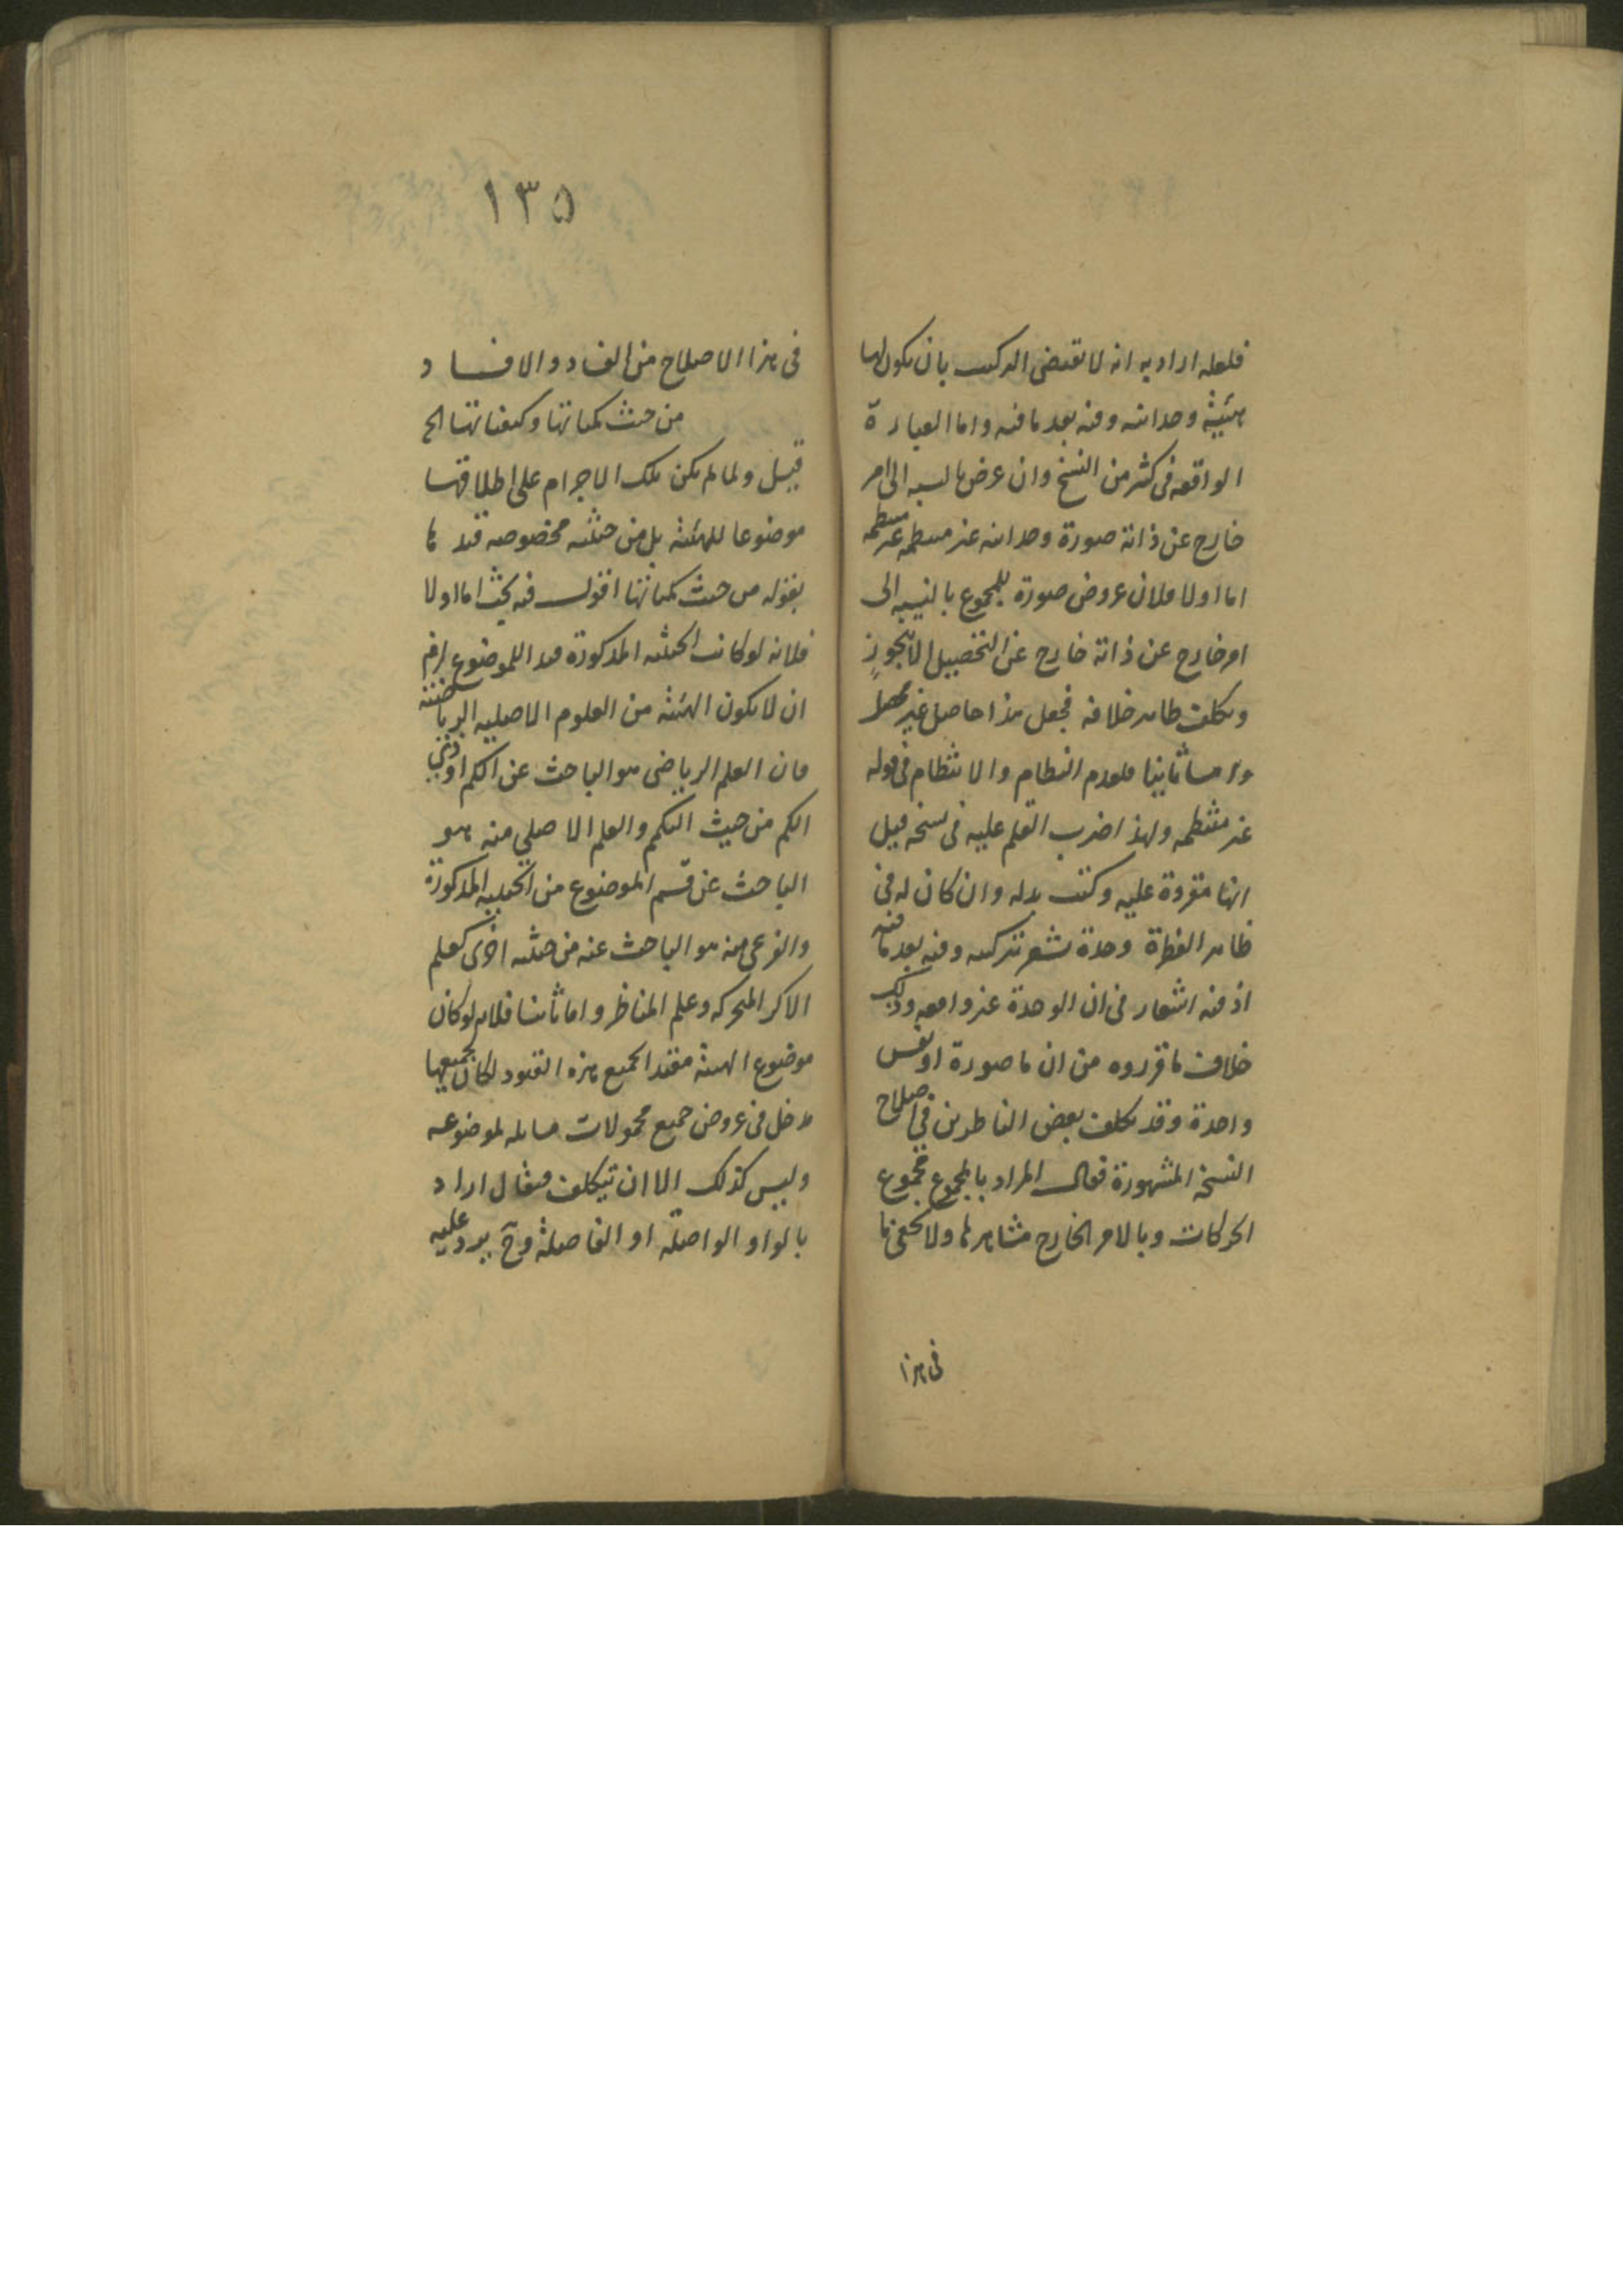 فلعله اراد به انه لا يقتضى التركيب بان يكون لها
هيئة وحدانيه وفيه بعد ما فيه واما العبارة
الواقعه فى كثير من النسخ وان عرض بالنسبه الى امر
خارج عن ذاته صورة وحدانيه غير منتظمه
اما اولا فلان عروض صورة للمجموع بالنسبه الى
امر خارج عن ذاته خارج عن التحصيل الا بتجوز
وتكلف ظاهر خلافه فجعل هذا حاصل غير
واما ثانيا فلعدم النظام والانتظام فى قوله
غير منتظمه ولهذا ضرب القلم عليه فى نسخه قيل
انها مقروة عليه وكتب بدله وان كان له فى
ظاهر الفطرة وحدة تشعر بتركيبه وفيه بعد ما فيه
اذ فيه اشعار فى ان الوحدة غير واقعيه وذلك
خلاف ما قرروه من ان ما صورة او نفس
واحدة وقد تكلف بعض الناظرين فى اصلاح
النسخه المشهورة فقال المراد بالمجموع مجموع
الحركات وبالامر الخارج مشاهدها ولا يخفى ما
فى هذا
١٣٥
فى هذا الاصلاح من الفساد والافساد
من حيث كمياتها وكيفياتها الخ
قيل ولما لم يكن تلك الاجرام على اطلاقها
موضوعا للهيئه بل من حيثيه مخصوصه قيدها
بقوله من حيث كمياتها اقول فيه بحث اما اولا
فلانه لو كانت الحيثيه المذكورة قيدا للموضوع لزم
ان لا يكون الهيئه من العلوم الاصليه الرياضيه
فان العلم الرياضى هو الباحث عن الكم او ذى
الكم من حيث الكم والعلم الاصلي منه هو
الباحث عن قسم الموضوع من الحيثيه المذكورة
والفرعى منه هو الباحث عنه من حيثيه اخرى كعلم
الاكر المتحركه وعلم المناظر واما ثانيا فلانه لو كان
موضوع الهيئه مقيدا بجميع هذه القيود لكان لجميعها
مدخل فى عروض جميع محمولات مسايله لموضوعه
وليس كذلك الا ان يتكلف فيقال اراد
بالواو الواصلة او الفاصلة وح يرد عليه